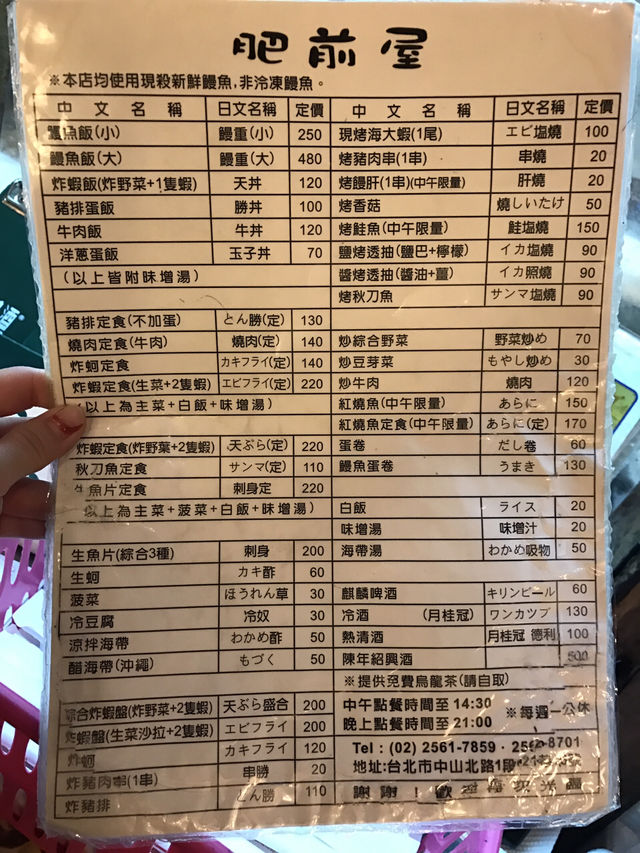 肥前屋
※本店均使用現殺新鮮鰻魚,非冷凍鰻魚。
中文名稱 日文名稱 定價
鰻魚飯(小) 鰻重(小) 250
鰻魚飯(大) 鰻重(大) 480
炸蝦飯(炸野菜+1隻蝦) 天丼 120
豬排蛋飯 勝丼 100
牛肉飯 牛丼 120
洋蔥蛋飯 玉子丼 70
(以上皆附味增湯)
豬排定食(不加蛋) とん勝(定) 130
燒肉定食(牛肉) 燒肉(定) 140
炸蚵定食 カキフライ(定) 140
炸蝦定食(生菜+2隻蝦) エビフライ(定) 220
以上為主菜+白飯+味增湯)
炸蝦定食(炸野菜+2隻蝦) 天ぷら(定) 220
秋刀魚定食 サンマ(定) 110
生魚片定食 刺身定 220
以上為主菜+菠菜+白飯+味增湯)
生魚片(綜合3種) 刺身 200
生蚵 カキ酢 60
菠菜 ほうれん草 30
冷豆腐 冷奴 30
涼拌海帶 わかめ酢 50
醋海帶(沖繩) もづく 50
綜合炸蝦盤(炸野菜+2隻蝦) 天ぷら盛合 200
炸蝦盤(生菜沙拉+2隻蝦) エビフライ 200
炸蚵 カキフライ 120
炸豬肉串(1串) 串勝 20
炸豬排 とん勝 110
中文名稱 日文名稱 定價
現烤海大蝦(1尾) エビ塩燒 100
烤豬肉串(1串) 串燒 20
烤鰻肝(1串)(中午限量) 肝燒 20
烤香菇 燒しいたけ 50
烤鮭魚(中午限量) 鮭塩燒 150
鹽烤透抽(鹽巴+檸檬) イカ塩燒 90
醬烤透抽(醬油+薑) イカ照燒 90
烤秋刀魚 サンマ塩燒 90
炒綜合野菜 野菜炒め 70
炒豆芽菜 もやし炒め 30
炒牛肉 燒肉 120
紅燒魚(中午限量) あらに 150
紅燒魚定食(中午限量) あらに(定) 170
蛋卷 だし卷 60
鰻魚蛋卷 うまき 130
白飯 ライス 20
味增湯 味增汁 20
海帶湯 わかめ吸物 50
麒麟啤酒 キリンビール 60
冷酒 (月桂冠) ワンカツプ 130
熱清酒 月桂冠 德利 100
陳年紹興酒 500
※提供免費烏龍茶(請自取)
中午點餐時間至 14:30
晚上點餐時間至 21:00
※每週一公休
Tel : (02) 2561-7859 · 8701
地址:台北市中山北路1段
謝謝!歡迎